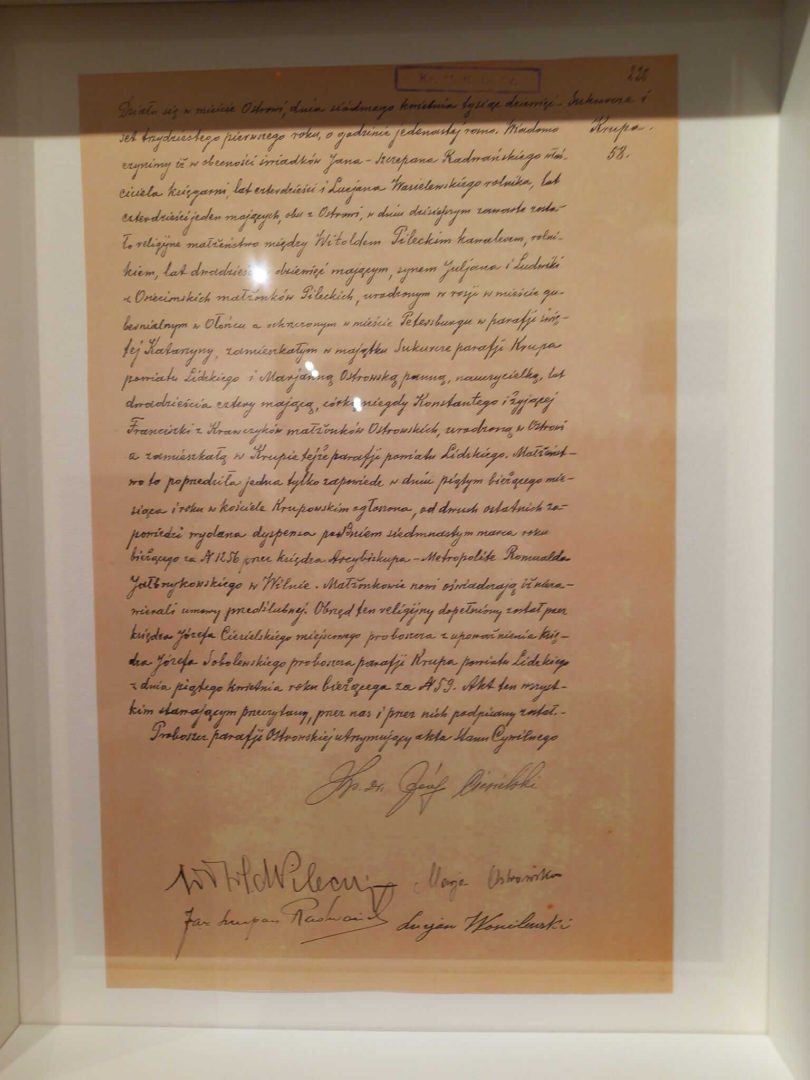 220
Działo się w mieście Ostrowi, dnia siódmego kwietnia tysiąc dziewięć-
Sukurcze i
set trzydziestego pierwszego roku, o godzinie jedenastej rano. Wiadomo
Krupa.
czynimy iż w obecności świadków Jana-Szczepana Radwańskiego właś-
58.
ciciela księgarni, lat czterdzieści i Lucjana Wasilewskiego rolnika, lat
czterdzieści jeden mających, obu z Ostrowi, w dniu dzisiejszym zawarte zosta-
ło religijne małżeństwo między Witoldem Pileckim kawalerem, rolni-
kiem, lat dwadzieścia dziewięć mającym, synem Juljana i Ludwiki
z Osiecimskich małżonków Pileckich, urodzonym w rosji w mieście gu-
bernialnym w Ołońcu a ochrzczonym w mieście Petersburgu w parafji świę-
tej Katarzyny, zamieszkałym w majątku Sukurcze parafji Krupa
powiatu Lidzkiego i Marjanną Ostrowską panną, nauczycielką, lat
dwadzieścia cztery mającą, córką niegdy Konstantego i żyjącej
Franciszki z Krawczyków małżonków Ostrowskich, urodzoną w Ostrowi
a zamieszkałą w Krupie tejże parafji powiatu Lidskiego. Małżeńst-
wo to poprzedziła jedna tylko zapowiedz w dniu piątym bieżącego mie-
siąca i roku w kościele Krupowskim ogłoszona, od dwuch ostatnich za-
powiedzi wydana dyspensa pod dniem siedmnastym marca roku
bieżącego za № 1256 przez księdza Arcybiskupa-Metropolitę Romualda
Jałbrzykowskiego w Wilnie. Małżonkowie nowi oświadczają iż nieza-
wierali umowy przedślubnej. Obrzęd ten religijny dopełniony został przez
księdza Józefa Ciesielskiego miejscowego proboszcza z upoważnienia księ-
dza Józefa Sobolewskiego proboszcza parafji Krupa powiatu Lidzkiego
z dnia piątego kwietnia roku bieżącego za № 59. Akt ten wszyst-
kim stawającym przeczytany, przez nas i przez nich podpisany został.-
Proboszcz parafji Ostrowskiej utrzymujący akta Stanu Cywilnego
Ks. dr. Józef Ciesielski
Witold Pilecki Marja Ostrowska
Jan Szczepan Radwański Lucjan Wasilewski